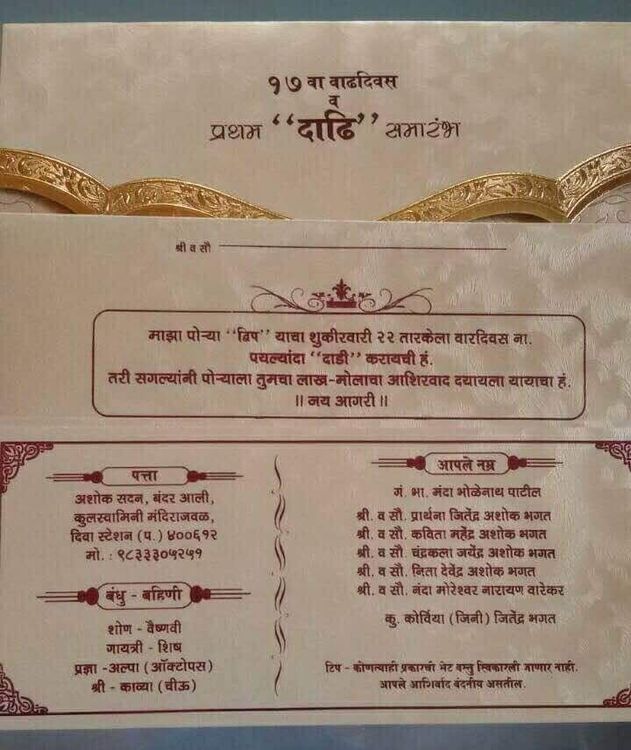 १७ वा वाढदिवस
व
प्रथम “दाढि” समारंभ
श्री व सौ
माझा पोऱ्या “द्विप” याचा शुकीरवारी २२ तारकेला वारदिवस ना.
पयल्यांदा “दाडी” करायची हं.
तरी सगल्यांनी पोऱ्याला तुमचा लाख-मोलाचा आशिरवाद दयायला यायाचा हं.
॥ जय आगरी ॥
पत्ता
अशोक सदन, बंदर आली,
कुलस्वामिनी मंदिराजवळ,
दिवा स्टेशन (प.) ४००६१२
मो. : ९८३३३०५२५१
बंधु - बहिणी
शोण - वैष्णवी
गायत्री - शिष
प्रज्ञा - अल्पा (ऑक्टोपस)
श्री - काव्या (चीऊ)
आपले नम्र
गं. भा. मंदा भोळेनाथ पाटील
श्री. व सौ. प्रार्थना जितेंद्र अशोक भगत
श्री. व सौ. कविता महेंद्र अशोक भगत
श्री. व सौ. चंद्रकला जयेंद्र अशोक भगत
श्री. व सौ. निता देवेंद्र अशोक भगत
श्री. व सौ. नंदा मोरेश्वर नारायण वारेकर
कु. कोर्विया (जिनी) जितेंद्र भगत
टिप - कोणत्याही प्रकारची भेट वस्तु स्विकारली जाणार नाही.
आपले आशिवाद वंदनीय असतील.